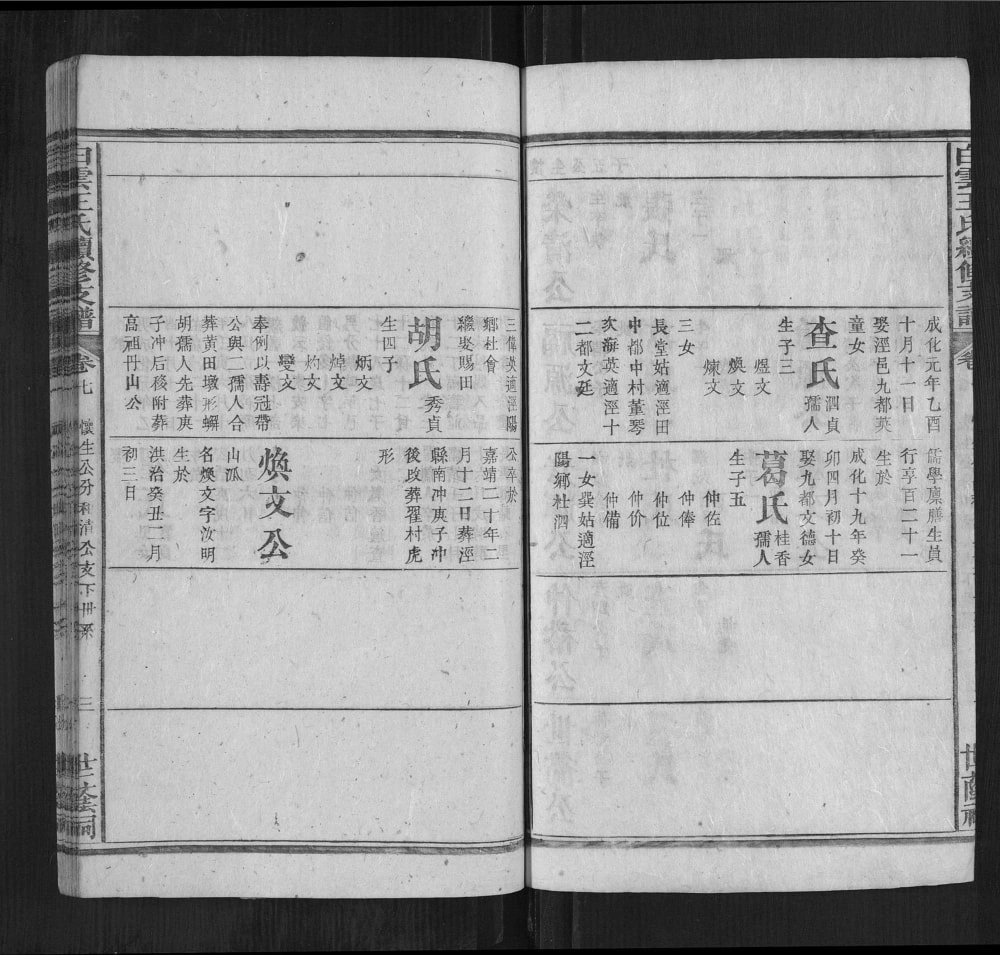 成化元年乙酉
十月十一日
娶涇邑九都英
童女
查氏 泗貞孺人
生子三
煜文
煥文
煉文
三女
長堂姑適涇田
中都中村董琴
次海英適涇十
二都文廷
儒學廩膳生員
行亨百二十一
生於
成化十九年癸
卯四月初十日
娶九都文德女
葛氏 桂香孺人
生子五
仲佐
仲俸
仲位
仲价
仲備
一女巽姑適涇
陽鄉杜泗
白雲王氏續修支譜
卷七
懷生公分和清公支下世系
三
世蔭祠
三偉英適涇陽
鄉杜會
繼娶賜田
胡氏 秀貞
生四子
炳文
焯文
灼文
燮文
奉例以壽冠帶
公與二孺人合
葬黃田墩形螄
胡孺人先葬庚
子冲后移附葬
高祖丹山公
公卒於
嘉靖二十年二
月十二日葬涇
縣南冲庚子冲
後政葬翟村虎
形
煥文公
山孤
名煥文字汝明
生於
洪治癸丑二月
初三日